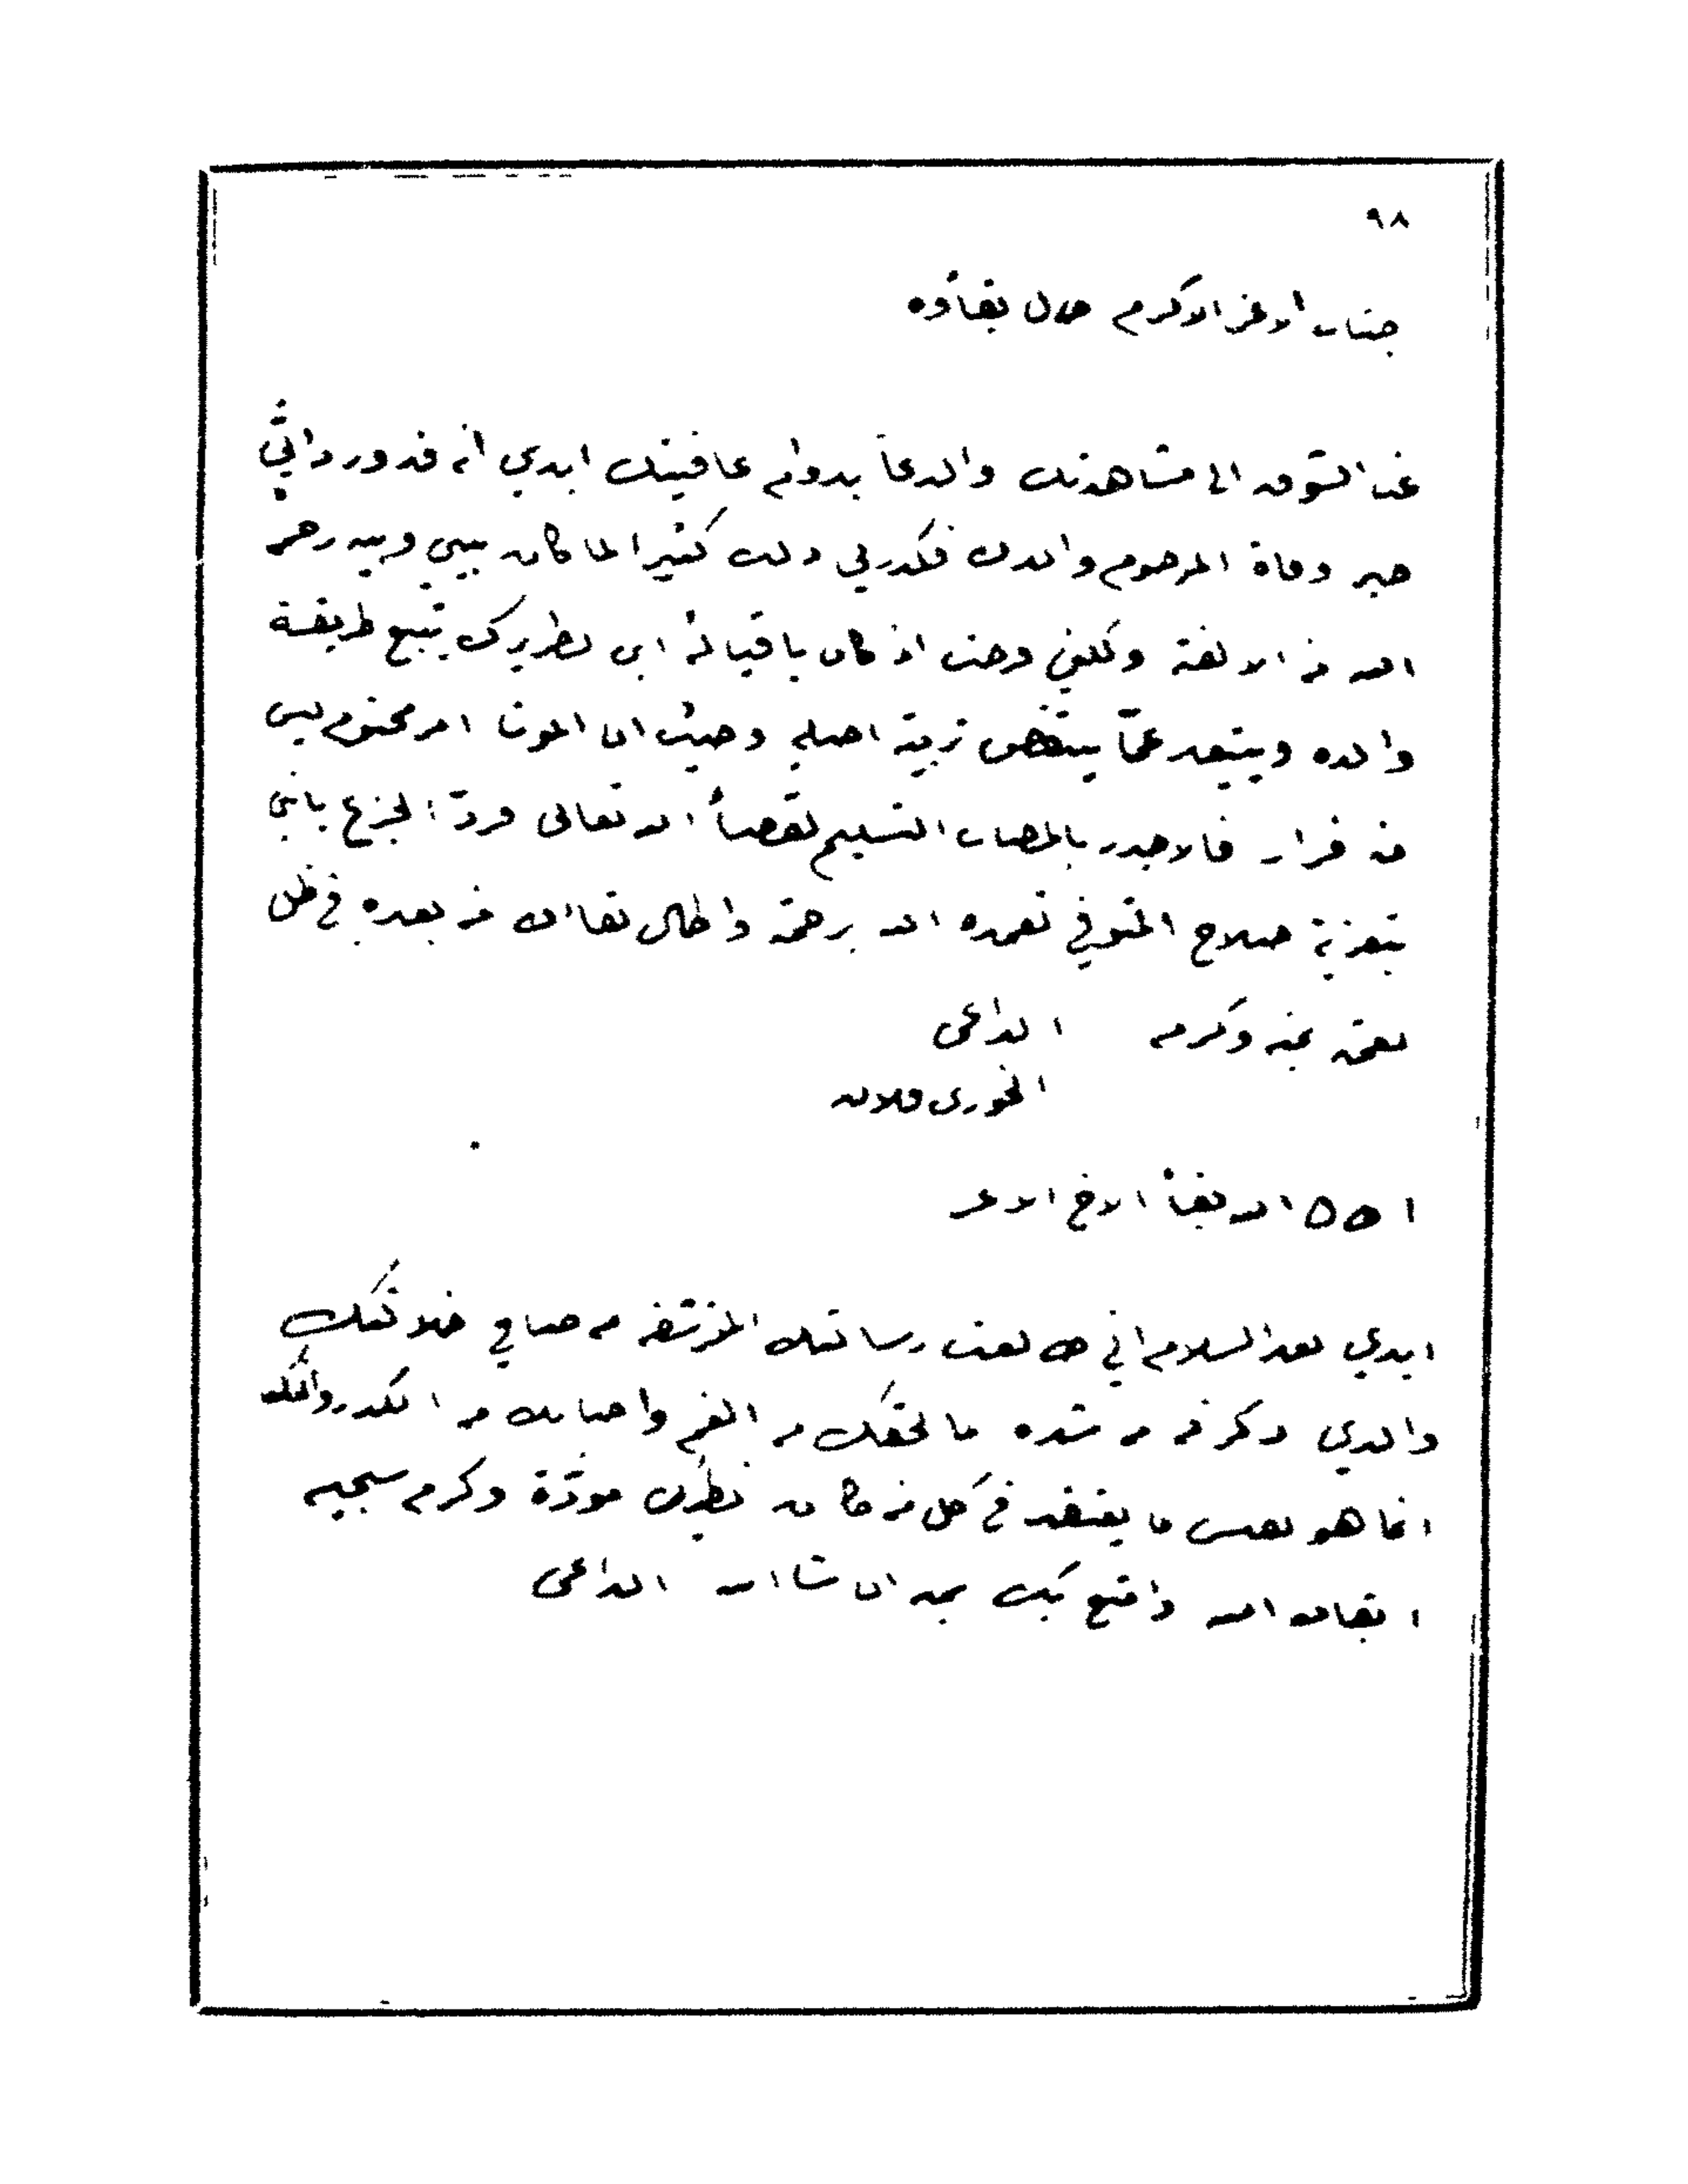 ٩٨
جناب الاعز الاكرم طال بقاؤه
غب الشوق الى مشاهدتك والدعا بدوام عافيتك ابدي انه قد ورد اليَّ
خبر وفاة المرحوم والدك فكدرني ذلك كثيرا لما كان بيني وبينه رحمه
الله من الالفة ولكني فرحت اذ كان باقيا له ابن نظيرك يتبع طريقة
والده ويبتعد عمّا ينقض تربية اصله وحيث ان الموت امر محتوم ليس
منه فرار فالاجدر بالمصاب التسليم لقضأ الله تعالى وردّ الجزع
بتعزية صلاح المتوفي تغمده الله برحمته واطال بقاك من بعده في ظل
نعمته بمنه وكرمه الداعي
الخوري فلان
اطال الله بقأ الاخ الاعز
ابدي بعد السلام اني طالعت رسالتك المرتشفه من صافي خلائقك
والذي ذكرته من شده ما لحقك من الغم واصابك من الكدر
انما هو بعض ما يفتقد في كل من كان نظيرك مودّة وكرم سجيه
ابقاك الله وامتع بك بمنه ان شا الله الداعي